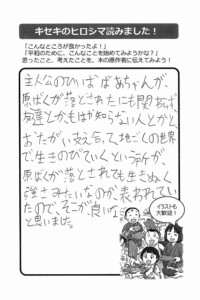 キセキのヒロシマ読みました！
「こんなところが良かったよ！」
「平和のために、こんなことを始めてみようかな？」
思ったこと、考えたことを、本の原作者に伝えてみよう！
主人公のひいばあちゃんが、
原ばくが落とされたにも関わらず
友達とか、まわりの知らない人とかと
おたがい支え合って地ごくの世界
で、生きのびていくという所が、
原ばくが落とされても生きぬく
強さみたいなのが、表われてい
たので、そこが、良いな
と思いました。
イラストも
大歓迎！